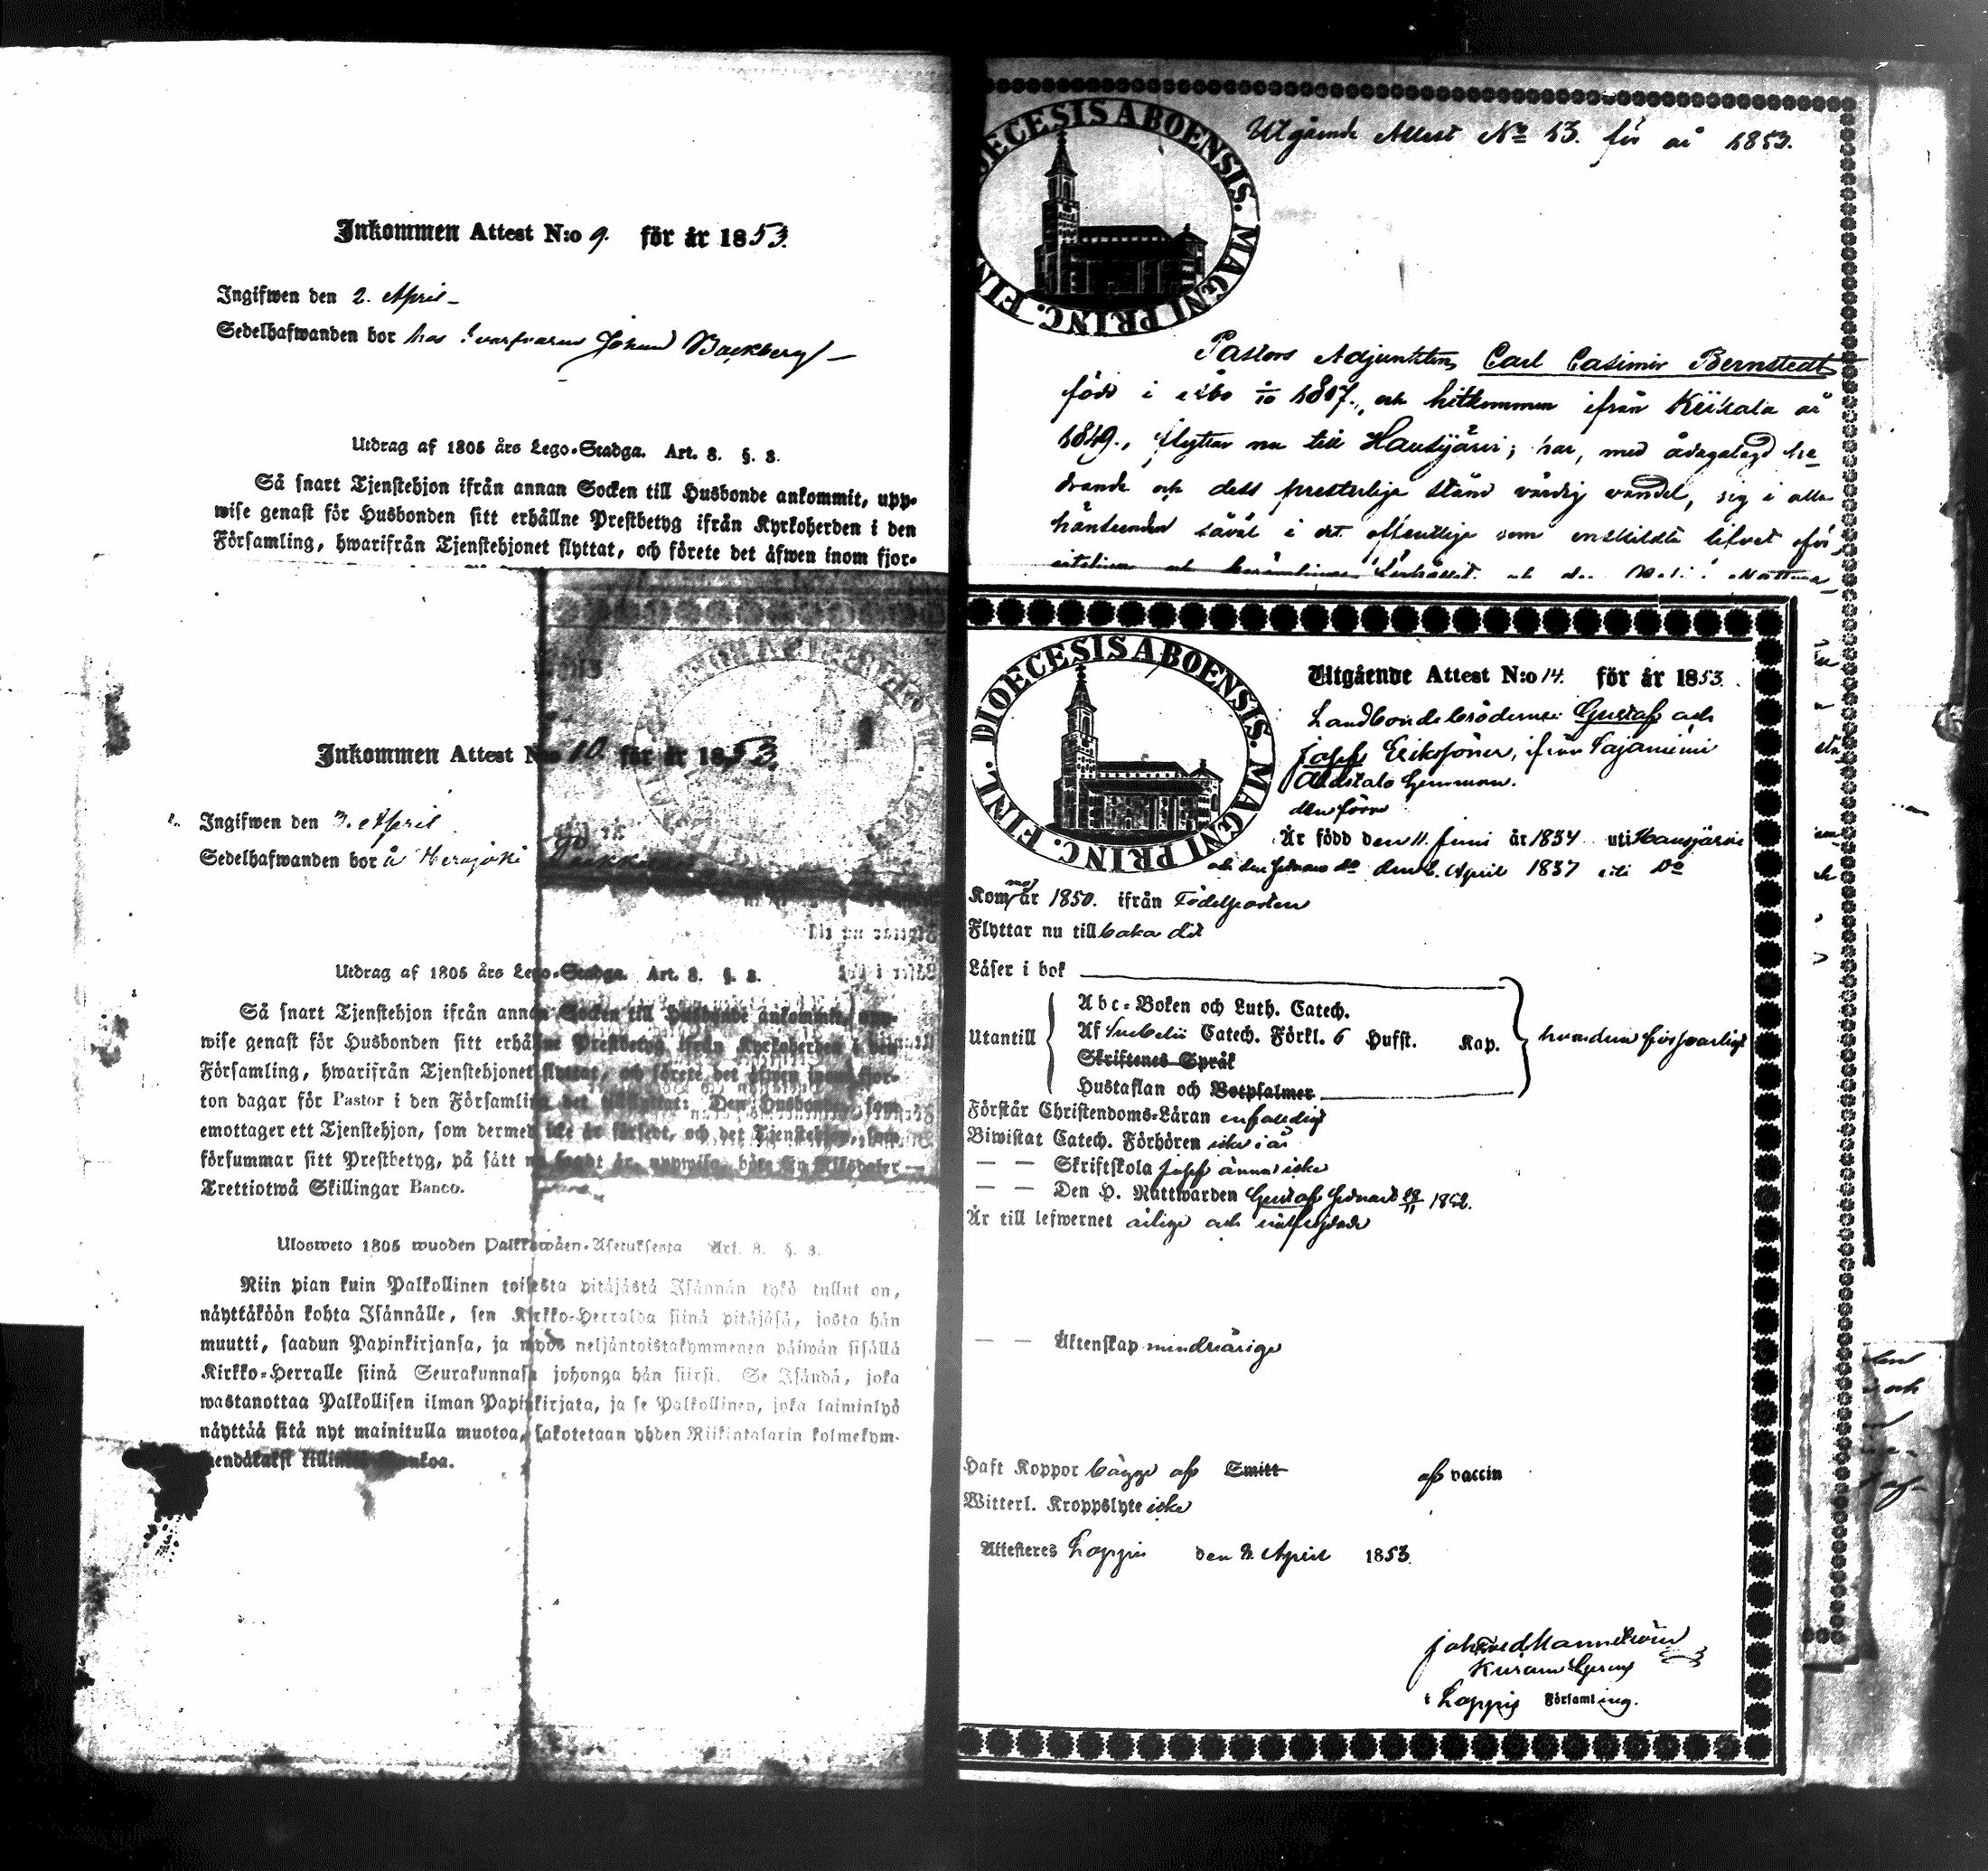 Inkommen Attest N:o 9. för år 1853.
Ingifwen den 2. April
Sedelhafwanden bor hos Johan Backberg
Utdrag af 1805 års Lego-Stadga. Art. 8. §. 3.
Så snart Tjenstehjon ifrån annan Socken till Husbonde ankommit, upp-
wise genast för Husbonden sitt erhållne Prestbetyg ifrån Kyrkoherden i den
Församling, hwarifrån Tjenstehjonet flyttat, och förete det äfwen inom fjor-
Inkommen Attest N:o 10. för år 1853.
Ingifwen den 3. April
Sedelhafwanden bor å Herajoki
Utdrag af 1805 års Lego-Stadga. Art. 8. §. 3.
Så snart Tjenstehjon ifrån annan Socken till Husbonde ankommit, upp-
wise genast för Husbonden sitt erhållne Prestbetyg ifrån Kyrkoherden i den
Församling, hwarifrån Tjenstehjonet flyttat, och förete det äfwen inom fjor-
ton dagar för Pastor i den Församling det Den Husbonde, som
emottager ett Tjenstehjon, som dermed icke är försedt, och det Tjenstehjon, som
försummar sitt Prestbetyg, på sätt nu sagdt är, uppwisa, böte En Riksdaler
Trettiotwå Skillingar Banco.
Ulosweto 1805 wuoden Palkkawäen-Asetuksesta Art. 8. §. 3.
Niin pian kuin Palkollinen toisesta pitäjästä Isännän tykö tullut on,
näyttäköön kohta Isännälle, sen Kirkko-Herralda siinä pitäjäsä, josta hän
muutti, saadun Papinkirjansa, ja myös neljäntoistakymmenen päiwän sisällä
Kirkko-Herralle siinä Seurakunnasa johonga hän siirsi. Se Isändä, joka
wastanottaa Palkollisen ilman Papinkirjata, ja se Palkollinen, joka laiminlyö
näyttää sitä nyt mainitulla muotoa, sakotetaan yhden Riikintalarin kolmekym-
mendäkaksi killingiä Bankoa.
DIOECESIS ABOENSIS. MAGNI PRINC. FINL.
Utgående Attest No 13. för år 1853.
Pastors Adjunkten, Carl Casimir Bernstedt
född i Åbo 1807., och hitkommen ifrån Kiikala år
1849., flyttar nu till Hausjärvi; har, med ådagalagd he-
drande och dess presterliga stånd värdig vandel, sig i alla
hänseenden såväl i det offentliga som enskildta lifvet
DIOECESIS ABOENSIS. MAGNI PRINC. FINL.
Utgående Attest N:o 14. för år 1853.
Landbondebröderne Gustaf och
Josef Erikssöner, ifrån Sajaniemi
den förre
Är född den 11. Juni år 1834 uti Hausjärvi
och den sednare do den 6. April 1837 uti Do
Komne år 1850. ifrån Födelseorten
Flyttar nu till baka dit
Läser i bok
Utantill
Abc-Boken och Luth. Catech.
Af Svebelii Catech. Förkl. 6 Hufst. Kap.
Skriftenes Språk
Hustaflan och Botpsalmer
försvarligt
Förstår Christendoms-Läran enfaldigt
Biwistat Catech. Förhören icke i år
— — Skriftskola Josef ännu icke
— — Den H. Nattwarden Gustaf sednast 1852.
Är till lefwernet ärlige och
— — Äktenskap minderårige
Haft Koppor bägge af Smitt af vaccin
Witterl. Kroppslyte icke
Attesteres Loppis den 3. April 1853.
i Loppis Församling.